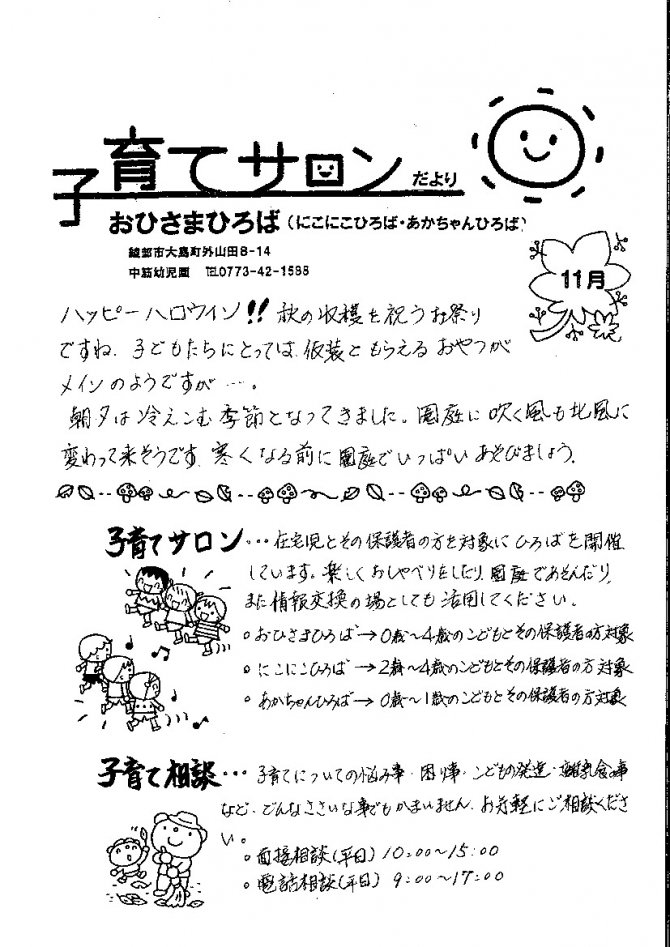 子育てサロンだより
おひさまひろば(にこにこひろば・あかちゃんひろば)
綾部市大島町外山田8-14
中筋幼児園 TEL0773-42-1588
11月
ハッピーハロウィン!! 秋の収穫を祝うお祭り
ですね。子どもたちにとっては、仮装ともらえるおやつが
メインのようですが…。
朝夕は冷えこむ季節となってきました。園庭に吹く風も北風に
変わって来そうです。寒くなる前に園庭でいっぱいあそびましょう。
子育てサロン・・・在宅児とその保護者の方を対象にひろばを開催
しています。楽しくおしゃべりをしたり、園庭であそんだり、
また情報交換の場としても活用してください。
○おひさまひろば→0歳～4歳のこどもとその保護者の方対象
○にこにこひろば→2歳～4歳のこどもとその保護者の方対象
○あかちゃんひろば→0歳～1歳のこどもとその保護者の方対象
子育て相談・・・子育てについての悩み事・困り事・こどもの発達・離乳食の事
など、どんなささいな事でもかまいません。お気軽にご相談くださ
い。
○面接相談(平日)10:00～15:00
○電話相談(平日)9:00～17:00